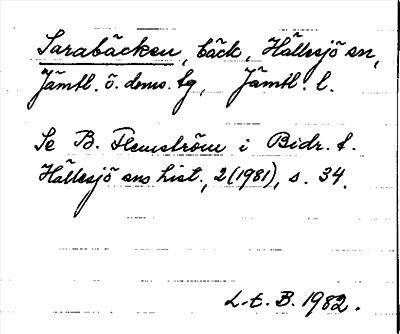 Sarabäcken, bäck, Hällesjö sn,
Jämtl. ö. doms. tg, Jämtl. l.
Se B. Flemström i Bidr. t.
Hällesjö sns hist., 2 (1981), s. 34.
L-t. B. 1982.